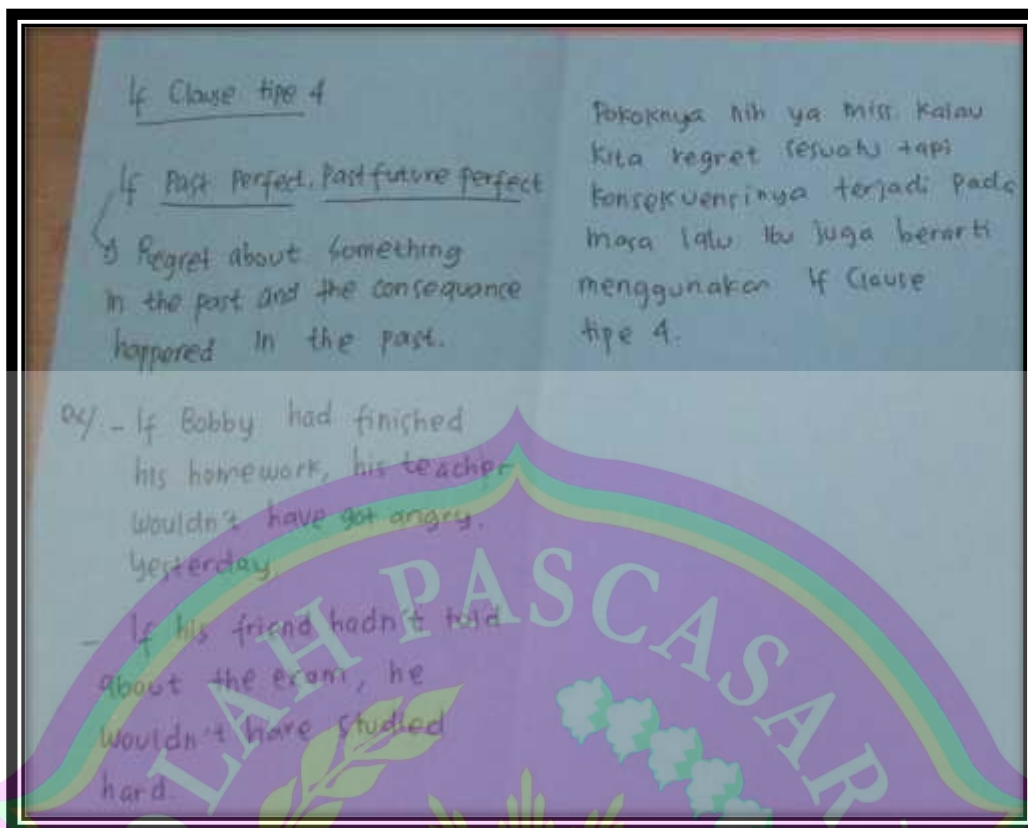 If Clause tipe 4
If Past Perfect, Past future perfect
Regret about something
in the past and the consequance
happened in the past.
ex/ - If Bobby had finished
his homework, his teacher
wouldn't have got angry.
yesterday.
- If his friend hadn't told
about the exam, he
wouldn't have studied
hard.
Pokoknya nih ya miss. Kalau
kita regret sesuatu tapi
konsekuensinya terjadi pada
masa lalu. Itu juga berarti
menggunakan If Clause
tipe 4.
LAH PASCASAR